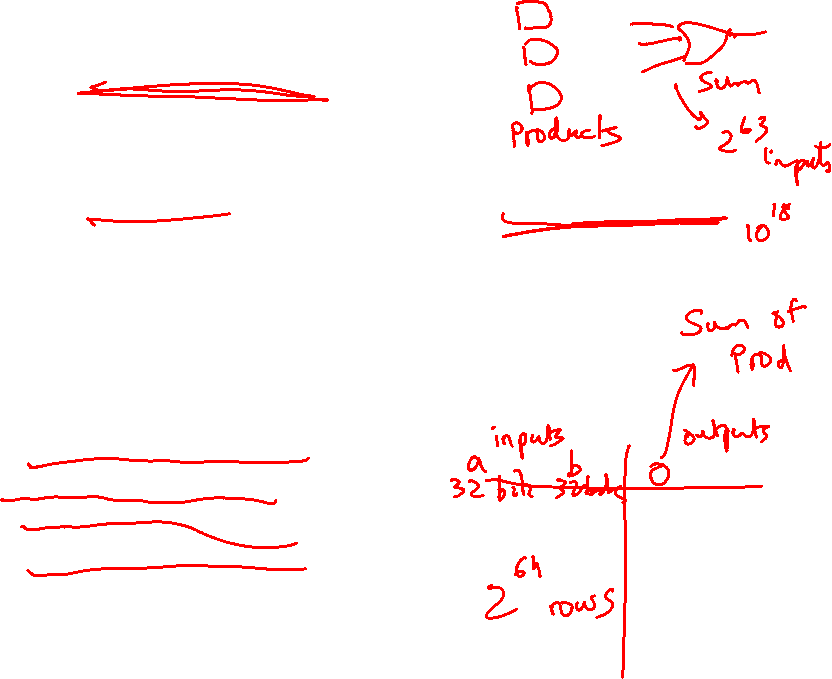 D
D
D
Sum
Products
2^63
inputs
10^18
Sum of
Prod
inputs
outputs
a b
32 bits 32 bits
0
2^64 rows